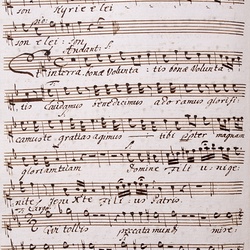 son Kyrie elei
son elei son
Andant:
Et in terra bonæ Volunta tis bonæ Volunta
tis Laudamus benedicimus adoramus glorifi
camuste gratias agimus tibi propter magnam
gloriam tuam Domine fili unige
nite Jesu Xte fili us Patris
qui tollis peccata mundi mise